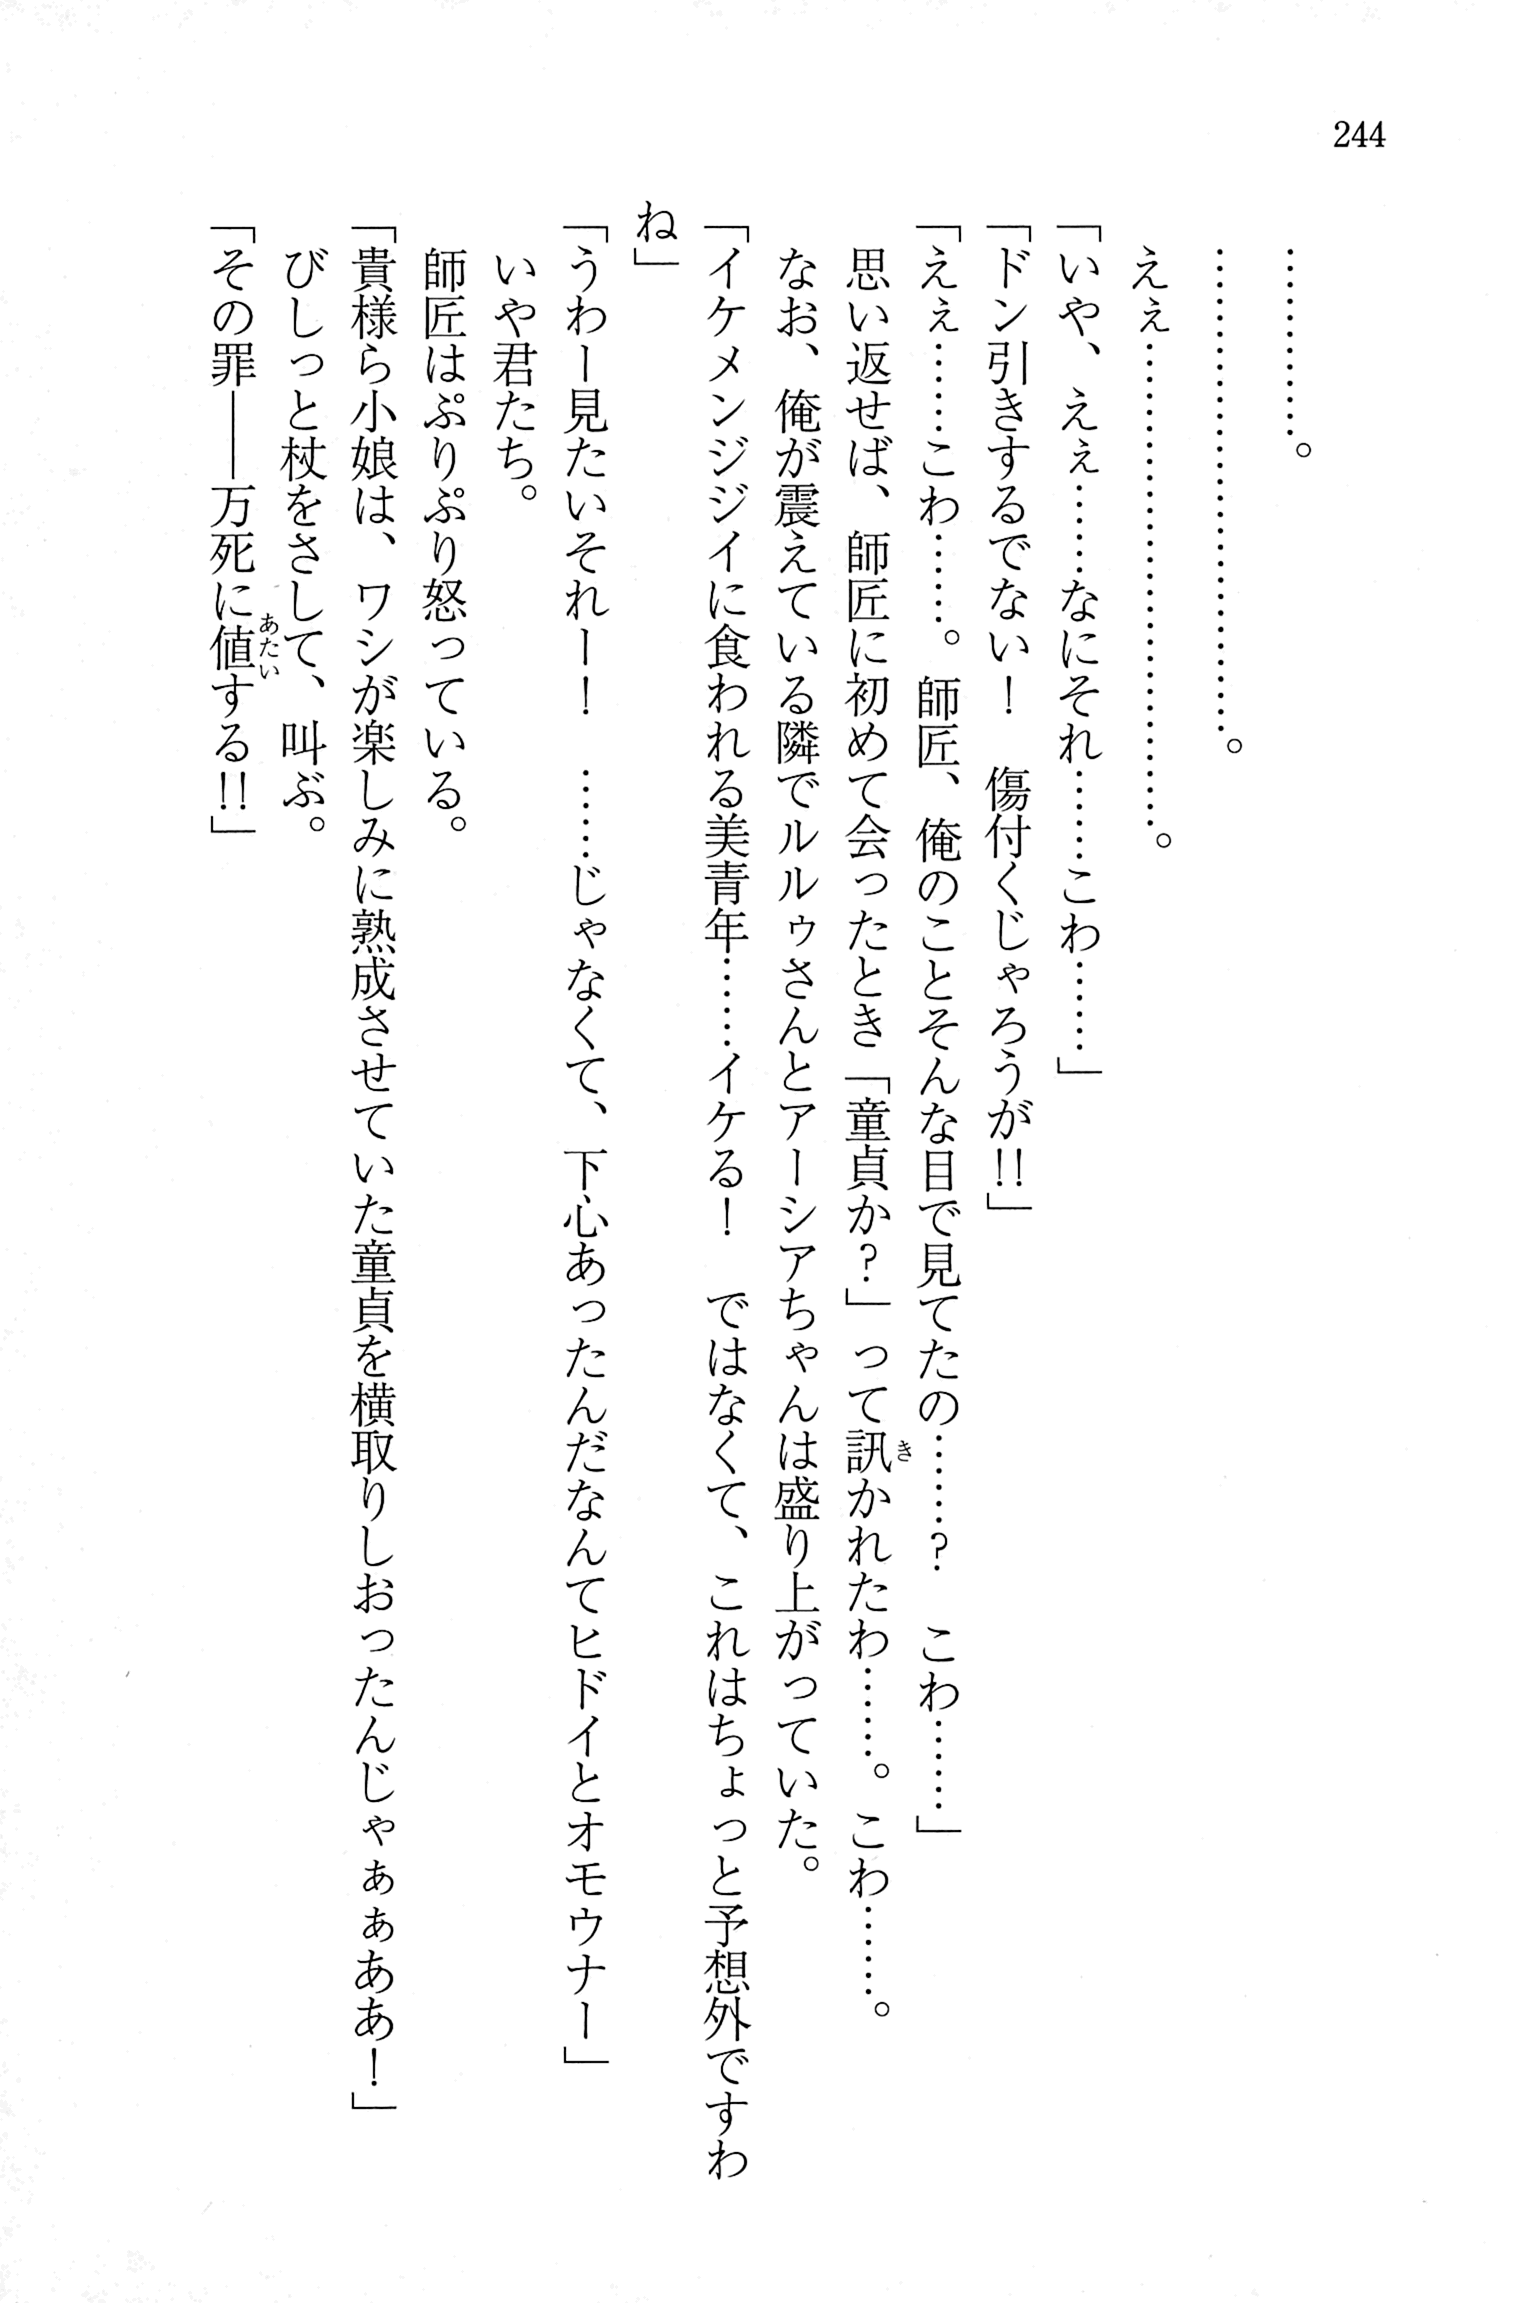 244
…………。
……………………………。
ええ………………………………。
「いや、ええ………なにそれ………こわ………」
「ドン引きするでない！　傷付くじゃろうが!!」
「ええ………こわ………。師匠、俺のことそんな目で見てたの………？　こわ………」
思い返せば、師匠に初めて会ったとき「童貞か？」って訊かれたわ………。こわ………。
なお、俺が震えている隣でルルゥさんとアーシアちゃんは盛り上がっていた。
「イケメンジジイに食われる美青年………イケる！　ではなくて、これはちょっと予想外ですわ
ね」
「うわー見たいそれー！　……じゃなくて、下心あったんだなんてヒドイとオモウナー」
いや君たち。
師匠はぷりぷり怒っている。
「貴様ら小娘は、ワシが楽しみに熟成させていた童貞を横取りしおったんじゃぁぁああ！」
びしっと杖をさして、叫ぶ。
「その罪――万死に値する!!」